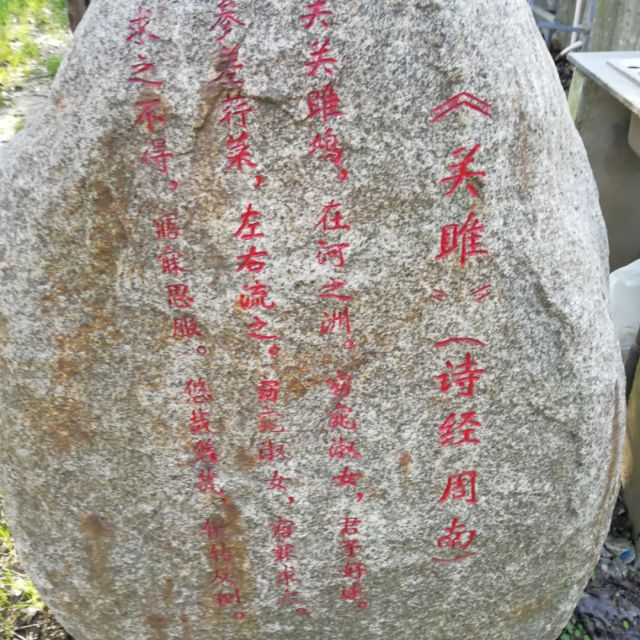 《关雎》（诗经周南）
关关雎鸠，在河之洲。窈窕淑女，君子好逑。
参差荇菜，左右流之。窈窕淑女，寤寐求之。
求之不得，寤寐思服。悠哉悠哉，辗转反侧。